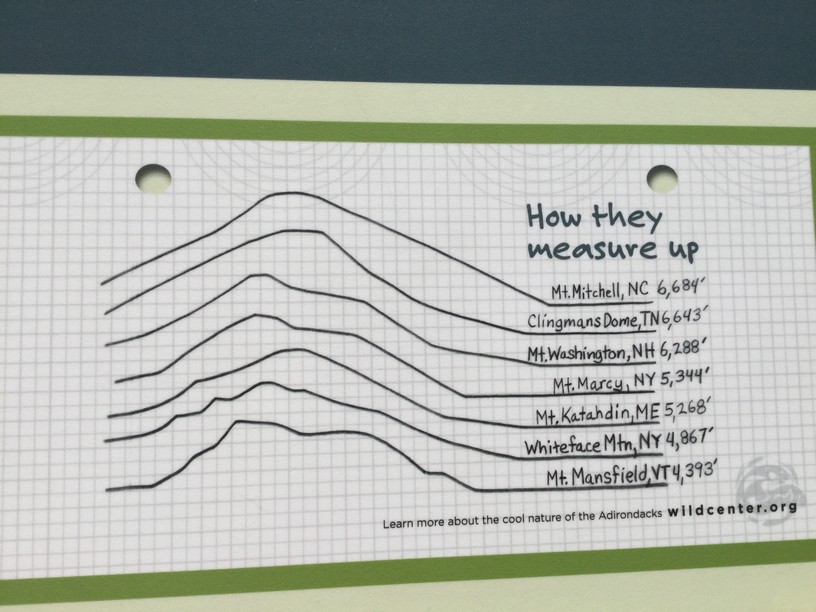 How they
measure up
Mt. Mitchell, NC 6,684'
Clingmans Dome, TN 6,643'
Mt. Washington, NH 6,288'
Mt. Marcy, NY 5,344'
Mt. Katahdin, ME 5,268'
Whiteface Mtn, NY 4,867'
Mt. Mansfield, VT 4,393'
Learn more about the cool nature of the Adirondacks wildcenter.org